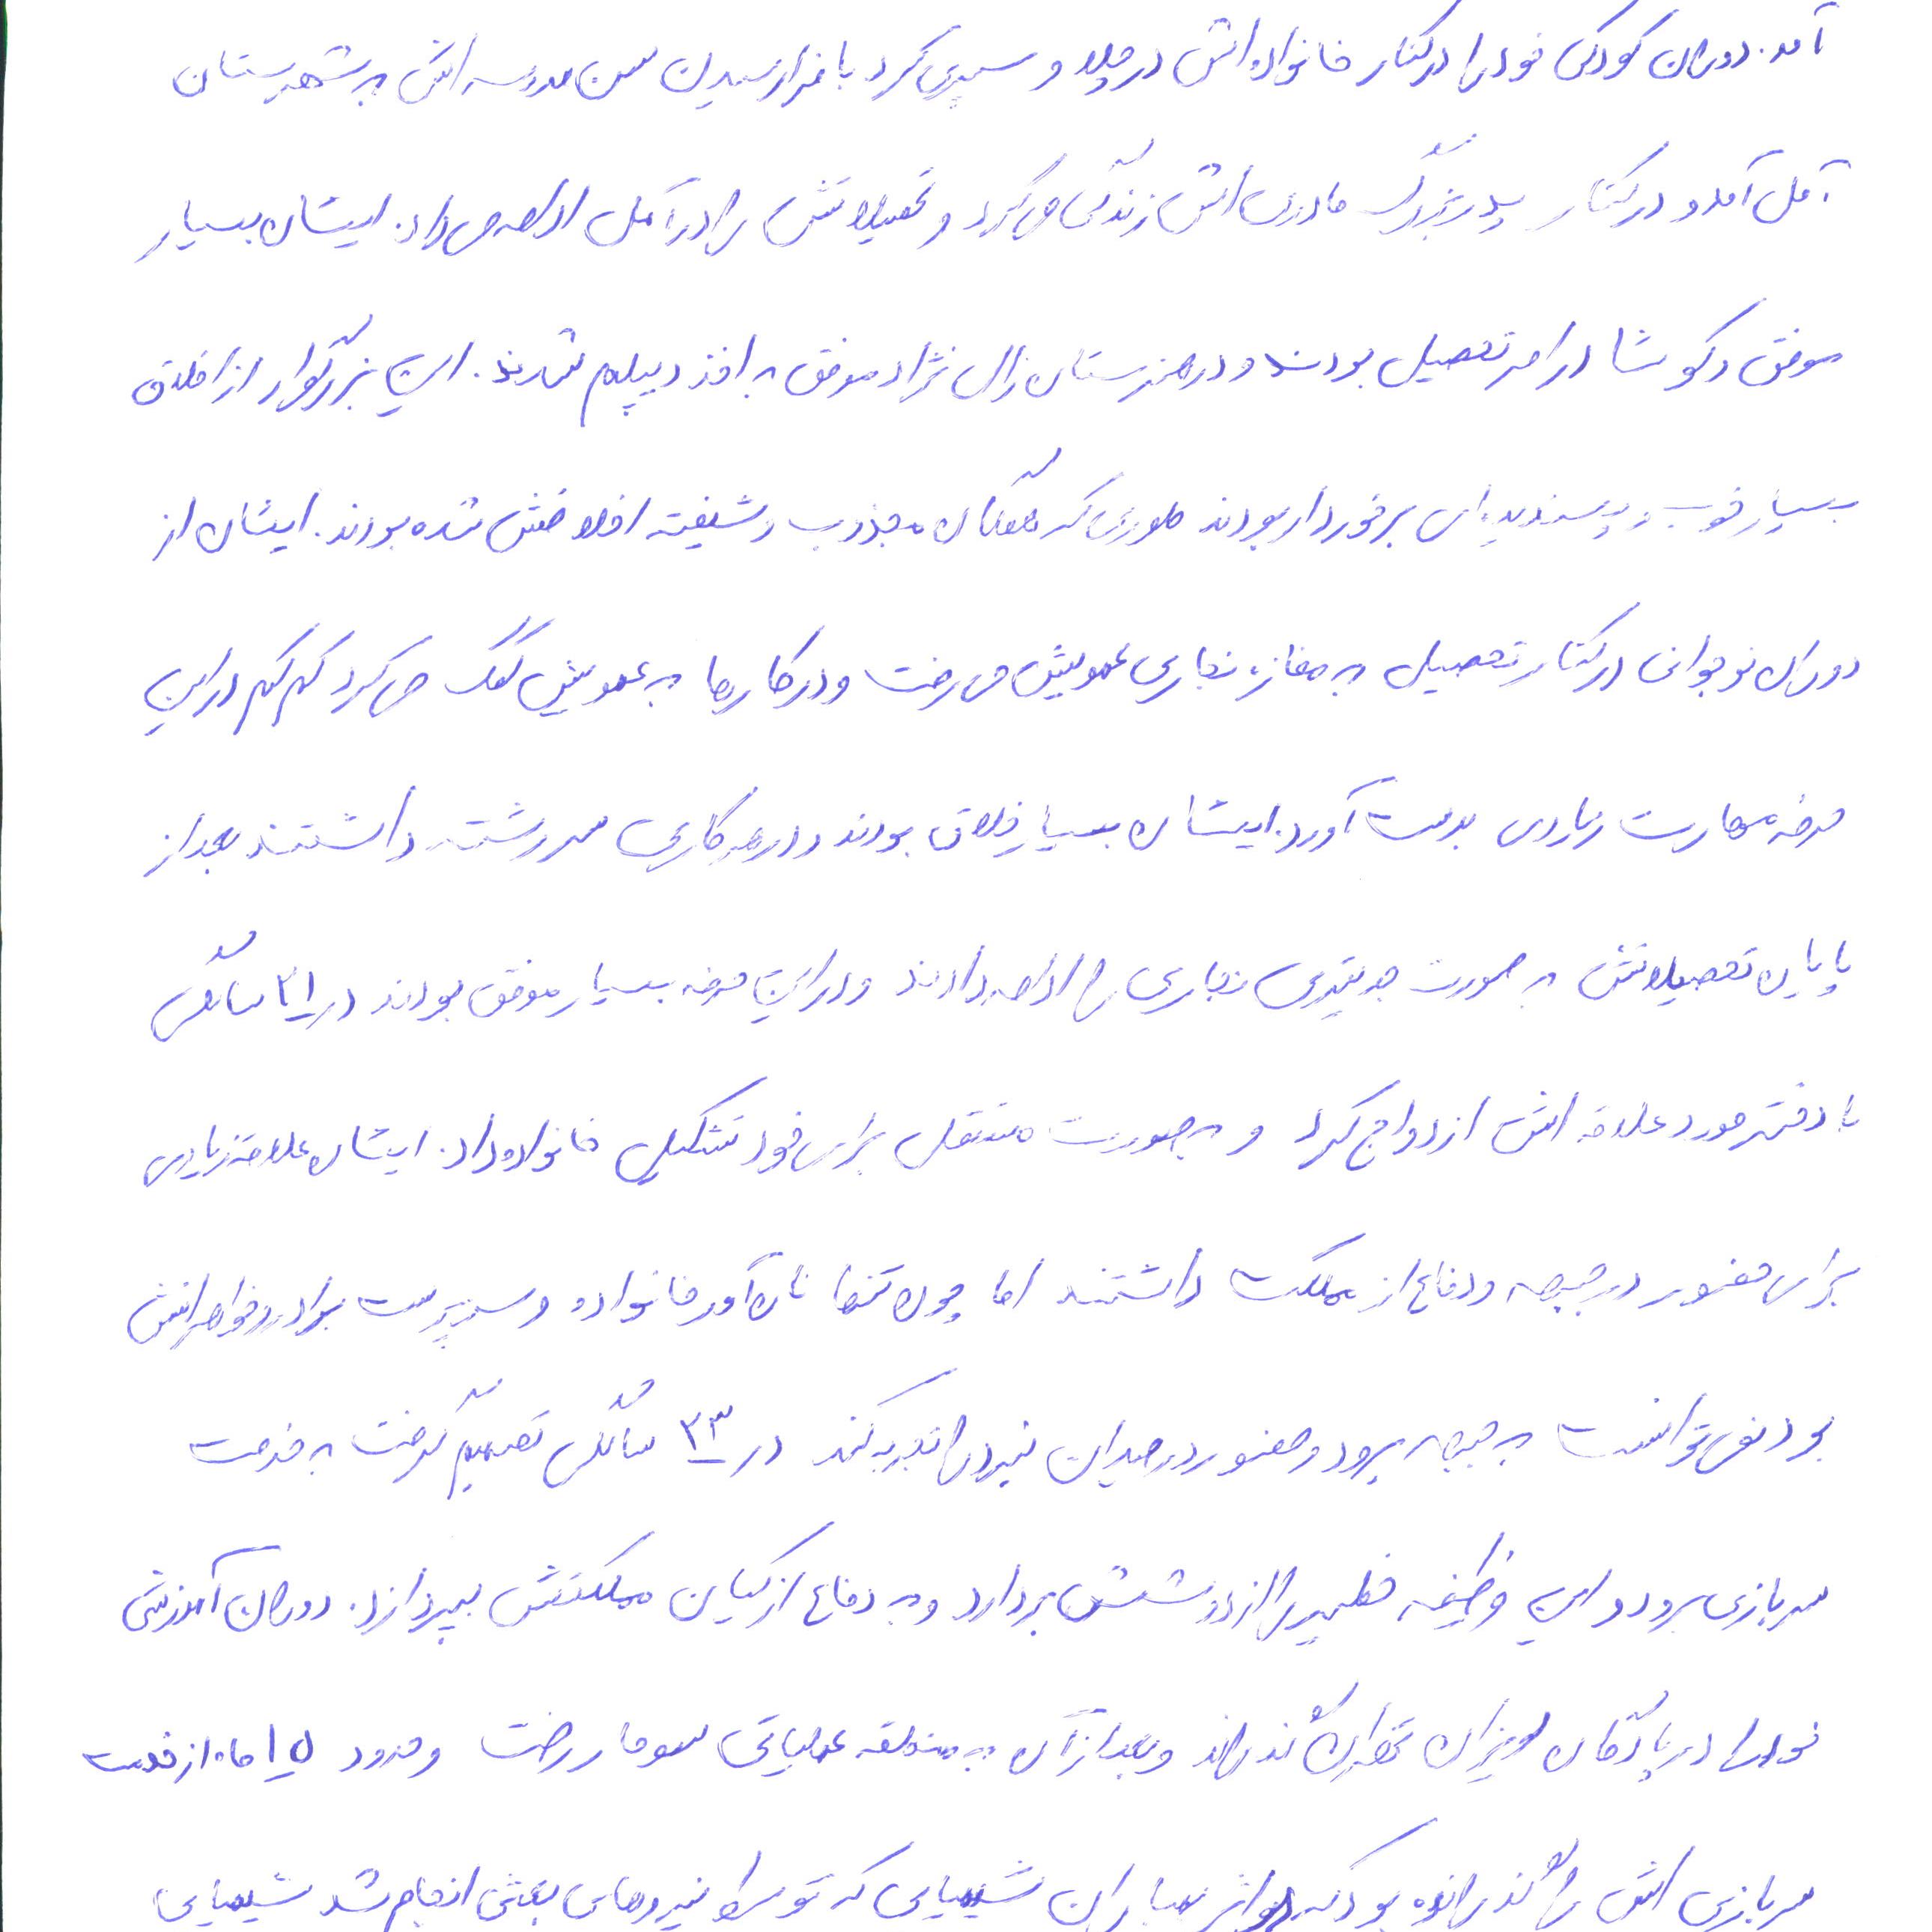 آمد. دوران کودکی خود را در کنار خانواده اش در چلاو سپری کرد با فرا رسیدن سن مدرسه اش به شهرستان
آمل آمد و در کنار پدربزرگ مادری اش زندگی می کرد و تحصیلاتش را در آمل ادامه می داد. ایشان بسیار
موفق و کوشا در امر تحصیل بودند و در هنرستان زال نژاد موفق به اخذ دیپلم شدند. این بزرگوار از اخلاق
بسیار خوب و پسندیده ای برخوردار بودند طوری که همگان مجذوب و شیفته اخلاقش شده بودند. ایشان از
دوران نوجوانی در کنار تحصیل به مغازه نجاری عمویش می رفت و در کارها به عمویش کمک می کرد کم کم در این
حرفه مهارت زیادی بدست آورد. ایشان بسیار خلاق بودند و در هر کاری سررشته داشتند بعد از
پایان تحصیلاتش به صورت جدیتری نجاری را ادامه دادند و در این حرفه بسیار موفق بودند در ۲۱ سالگی
با دختر مورد علاقه اش ازدواج کرد و به صورت مستقل برای خود تشکیل خانواده داد. ایشان علاقه زیادی
برای حضور در جبهه و دفاع از مملکت داشتند اما چون تنها نان آور خانواده و سرپرست برادر و خواهرانش
بود نمی توانست به جبهه برود و حضور در میدان نبرد را تجربه کند در ۲۳ سالگی تصمیم گرفت به خدمت
سربازی برود و این وظیفه خطیر را از دوشش بردارد و به دفاع از کیان مملکتش بپردازد. دوران آموزشی
خود را در پادگان لویزان تهران گذراند و بعد از آن به منطقه عملیاتی سومار رفت و حدود ۱۵ ماه از خدمت
سربازی اش را گذرانده بود که در اثر بمباران شیمیایی که توسط نیروهای بعثی انجام شد شیمیایی